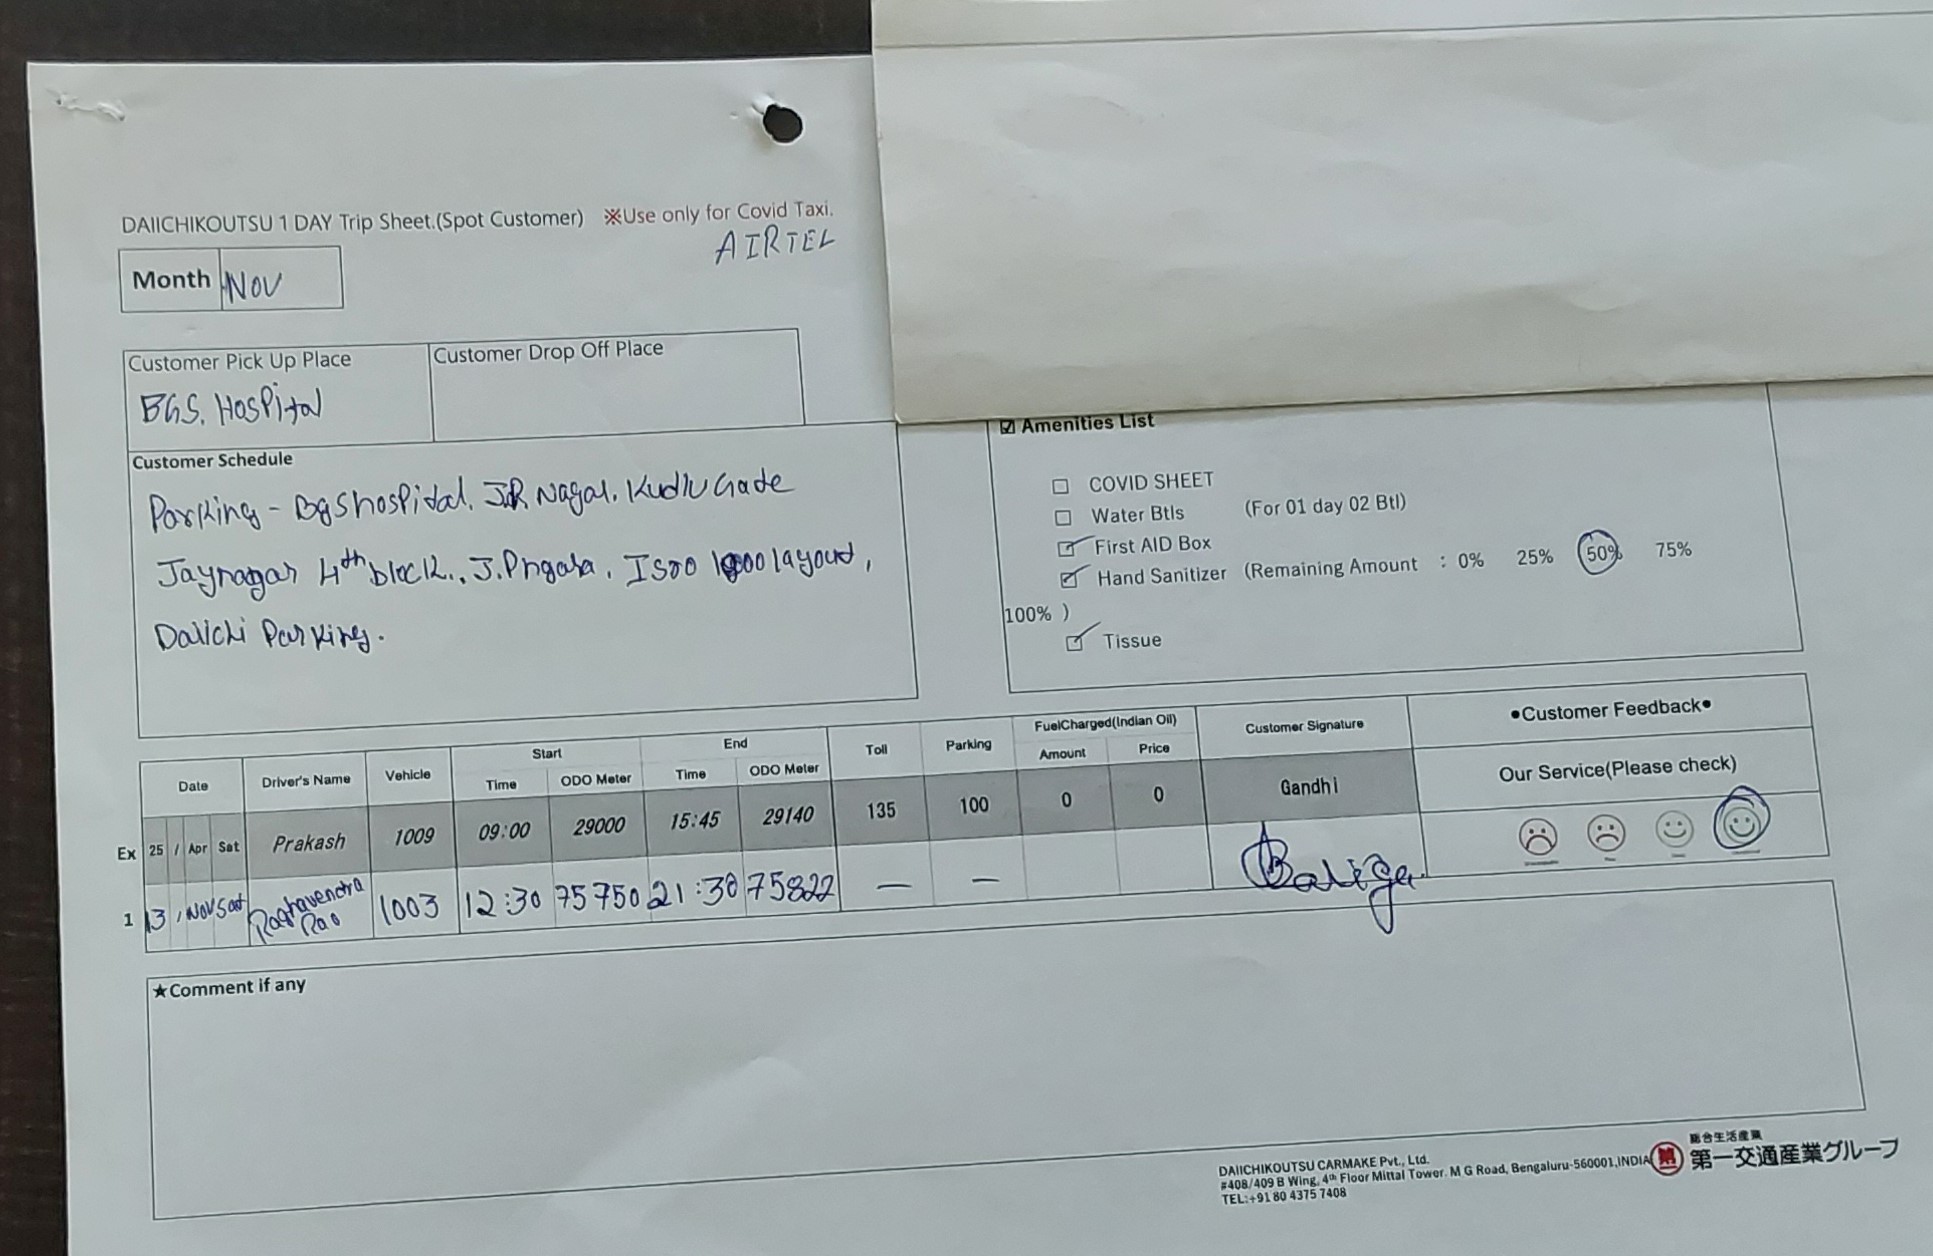 DAIICHIKOUTSU 1 DAY Trip Sheet.(Spot Customer) ※Use only for Covid Taxi.
AIRTEL
Month NOV
Customer Pick Up Place Customer Drop Off Place
BGS. HosPital
Customer Schedule
Parking - BgShosPital. J.R. Nagar. Kudlu Gade
Jaynagar 4th block., J.P.ngara, Isro layout,
Daiichi Parking.
☑ Amenities List
☐ COVID SHEET
☐ Water Btls (For 01 day 02 Btl)
☑ First AID Box
☑ Hand Sanitizer (Remaining Amount : 0% 25% 50% 75%
100% )
☑ Tissue
Date Driver's Name Vehicle Start End Toll Parking FuelCharged(Indian Oil) Customer Signature •Customer Feedback•
Time ODO Meter Time ODO Meter Amount Price Our Service(Please check)
Ex 25 / Apr Sat Prakash 1009 09:00 29000 15:45 29140 135 100 0 0 Gandhi
1 13 / NOV Sat Raghavendra Rao 1003 12:30 75750 21:30 75822 — — Baliga
★Comment if any
DAIICHIKOUTSU CARMAKE Pvt., Ltd.
#408/409 B Wing, 4th Floor Mittal Tower. M G Road, Bengaluru-560001,INDIA
TEL:+91 80 4375 7408
総合生活産業
第一交通産業グループ